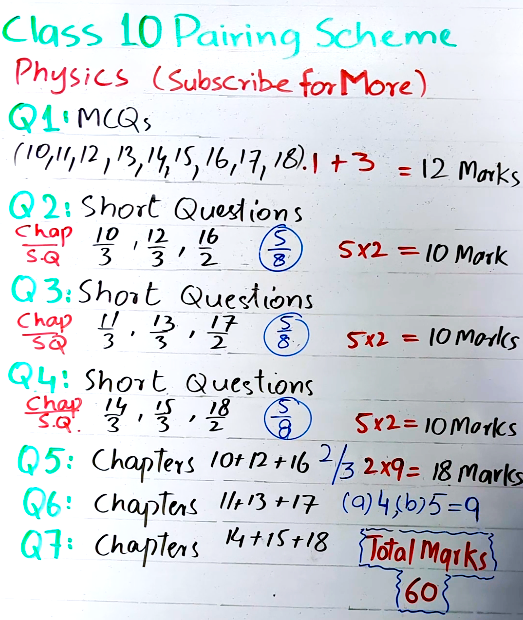 Class 10 Pairing Scheme
Physics (Subscribe for More)
Q1: MCQs
(10,11,12,13,14,15,16,17,18).1+3 = 12 Marks
Q2: Short Questions
Chap/S.Q 10/3, 12/3, 16/2 5/8 5x2 = 10 Mark
Q3: Short Questions
Chap/SQ 11/3, 13/3, 17/2 5/8 5x2 = 10 Marks
Q4: Short Questions
Chap/S.Q. 14/3, 15/3, 18/2 5/8 5x2 = 10 Marks
Q5: Chapters 10+12+16 2/3 2x9= 18 Marks
Q6: Chapters 11+13+17 (a)4,(b)5=9
Q7: Chapters 14+15+18 Total Marks
60